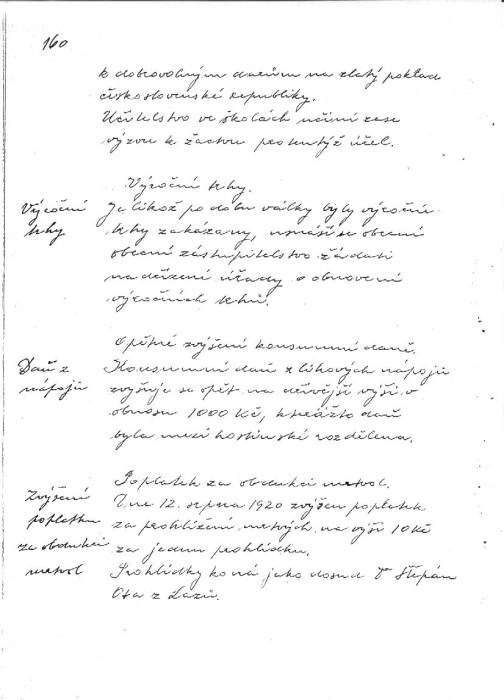 160
k dobrovolným darům na zlatý poklad
československé republiky.
Učitelstvo ve školách učiní zase
výzvu k žactvu pro tentýž účel.
Výroční trhy.
Výroční
trhy
Jelikož po dobu války byly výroční
trhy zakázany, usnáší se obecní
obecní zastupitelstvo žádati
nadřízení úřady o obnovení
výročních trhů.
Opětné zvýšení konsumní daně.
Daň z
nápojů
Konsumní daň z lihových nápojů
zvyšuje se opět na dřívější výši v
obnosu 1000 Kč, kterážto daň
byla mezi hostinské rozdělena.
Poplatek za obdukci mrtvol.
Zvýšení
poplatku
za obdukci
mrtvol
Dne 12. srpna 1920 zvýšen poplatek
za prohlížení mrtvých na výši 10 Kč
za jednu prohlídku.
Prohlídky koná jako dosud Štěpán
Ota z Lazů.